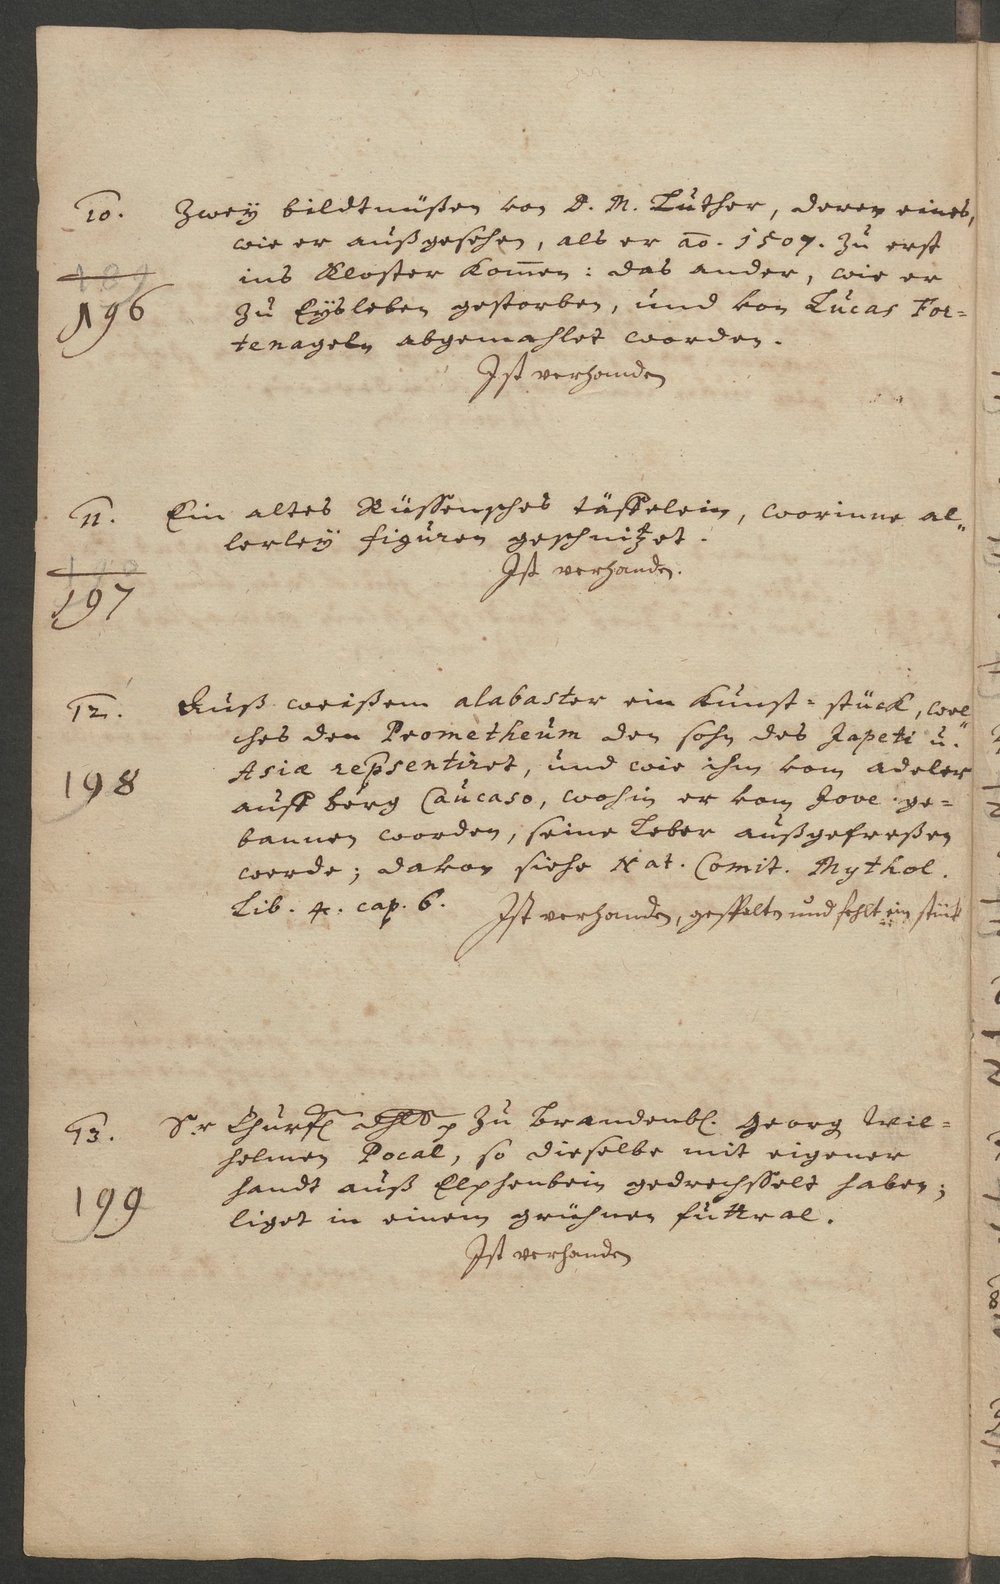 10. Zweÿ bildtnüßen von D. M. Luther, deren eines,
wie er außgesehen, als er ao. 1507. zu erst
ins Kloster kom̄en: das ander, wie er
196
zu Eÿsleben gestorben, und von Lucas For=
tenageln abgemahlet worden.
Ist verhanden
11. Ein altes Rüssensches täffelein, worinne al=
lerleÿ figuren geschnitzet.
Ist verhanden.
197
12. Auß weißem alabaster ein kunst=stück, wel=
ches den Prometheum den sohn des Japeti u.
198
Asiæ repsentiret, und wie ihm vom adeler
auff berg Caucaso, wohin er vom Jove ge=
bannen worden, seine leber außgefreßen
werde; davon siehe Nat. Comit. Mythol.
Lib. 4. cap. 6. Ist verhanden, gespalten und fehlt ein stück
13. Sr Churfl dhlt p zu Brandenb. Georg Wil=
helmen Pocal, so dieselbe mit eigener
199
handt auß Elphenbein gedrechsselt haben;
liget in einem grühnen futtral.
Ist verhanden